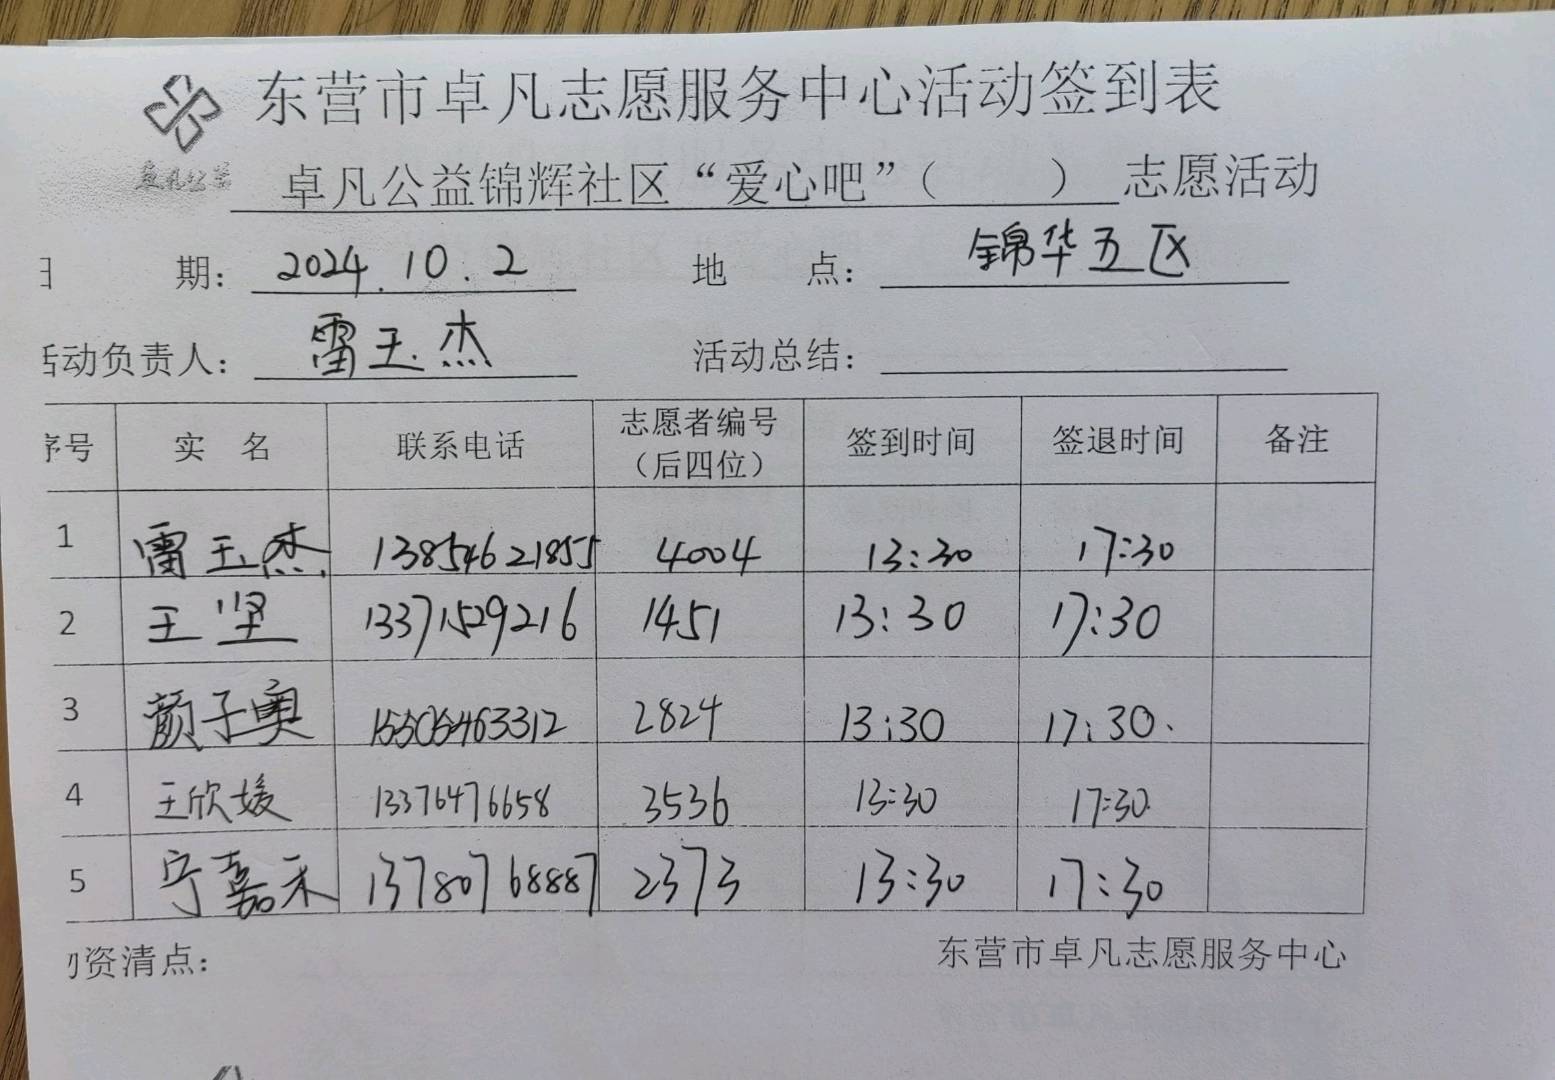 东营市卓凡志愿服务中心活动签到表
卓凡公益
卓凡公益锦辉社区“爱心吧”（ ）志愿活动
日 期： 2024.10.2 地 点： 锦华五区
活动负责人： 雷玉杰 活动总结：
序号 实 名 联系电话 志愿者编号（后四位） 签到时间 签退时间 备注
1 雷玉杰 13854621855 4004 13:30 17:30
2 王坚 13371529216 1451 13:30 17:30
3 颜子奥 15305463312 2824 13:30 17:30.
4 王欣媛 13376476658 3536 13:30 17:30
5 宁嘉禾 13780768887 2373 13:30 17:30
物资清点： 东营市卓凡志愿服务中心